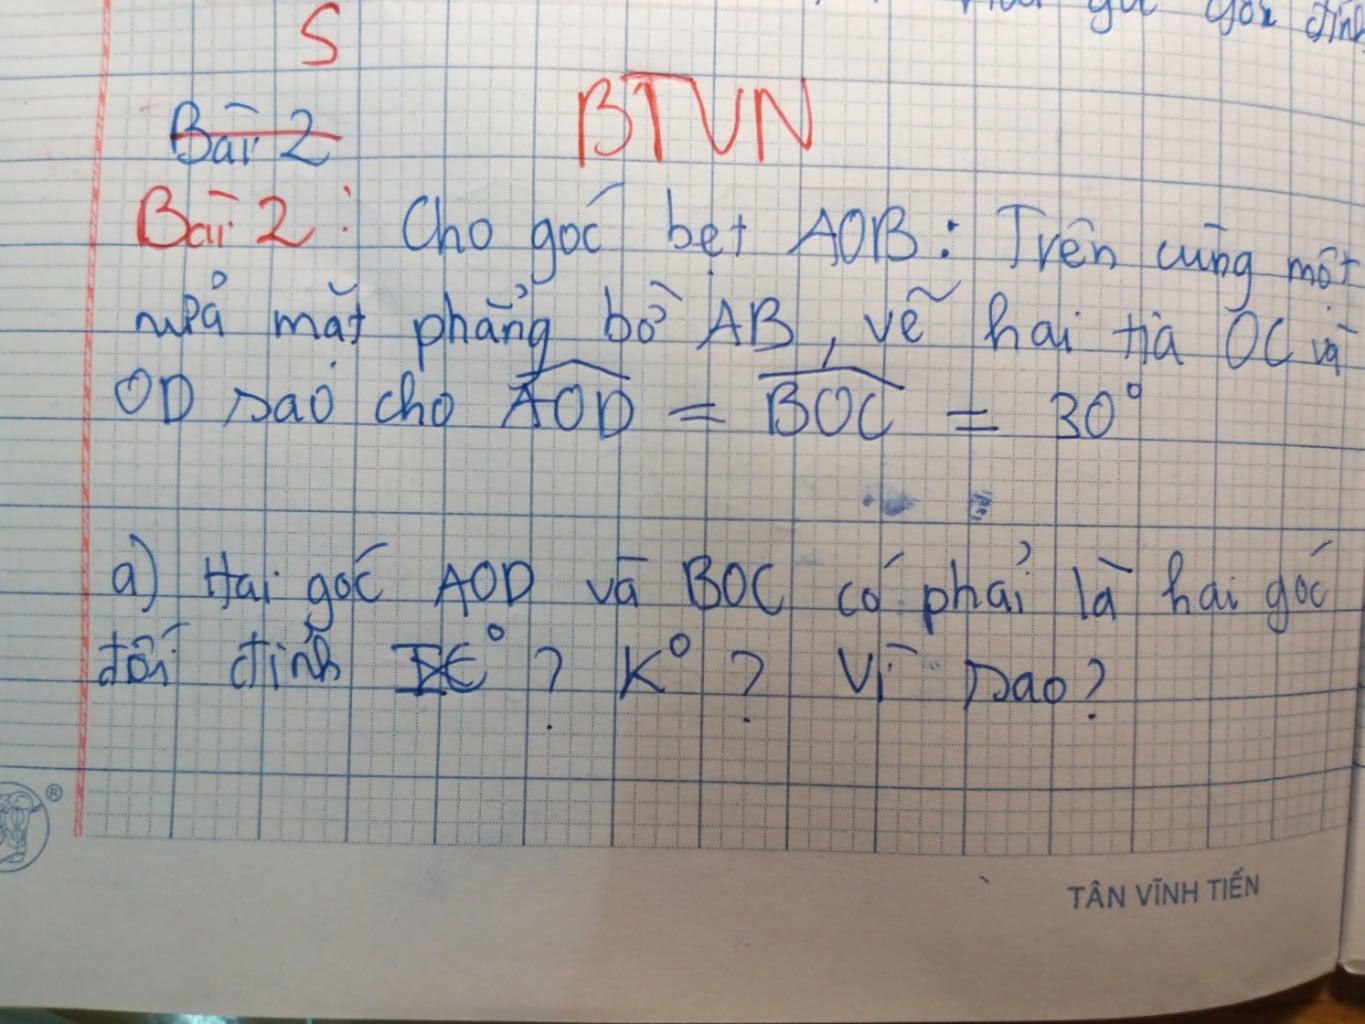 góc đỉnh
S
Bài 2
BTVN
Bài 2: Cho góc bẹt AOB: Trên cùng một
nửa mặt phẳng bờ AB, vẽ hai tia OC và
OD sao cho AOD = BOC = 30°
a) Hai góc AOD và BOC có phải là hai góc
đối đỉnh ? K° ? Vì sao?
®
TÂN VĨNH TIẾN